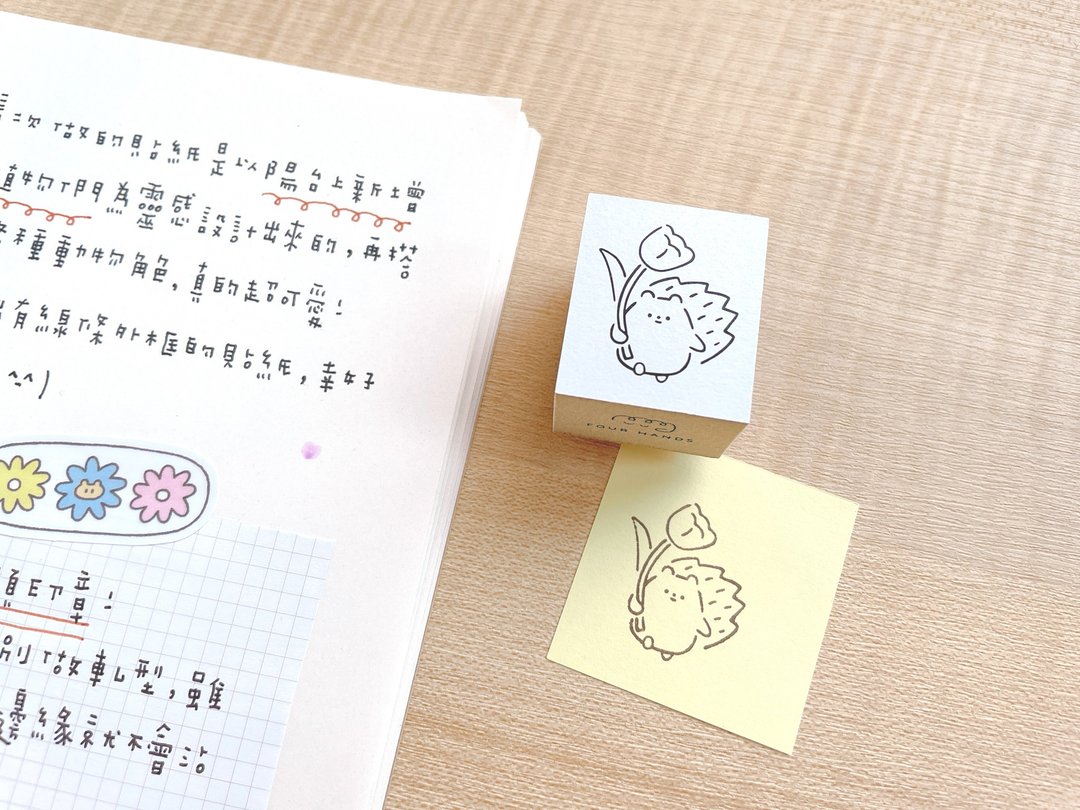 這次做的貼紙是以陽台上新增
植物們為靈感設計出來的，再搭
種動物角色，真的超可愛！
有線條外框的貼紙，幸好
^^)
印章！
別做軋型，雖
邊緣就不會沾
FOUR HANDS